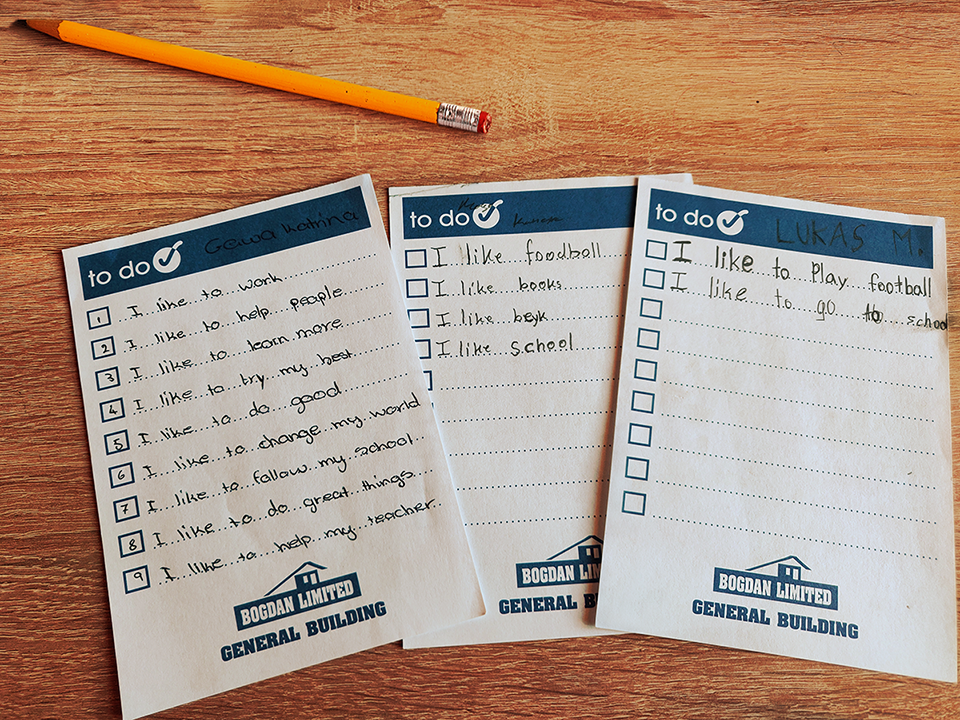 to do Gewa Katrina
1 I like to work
2 I like to help people
3 I like to learn more
4 I like to try my best
5 I like to do good
6 I like to change my world
7 I like to follow my school
8 I like to do great things
9 I like to help my teacher
BOGDAN LIMITED
GENERAL BUILDING
to do
I like foodball
I like books
I like beyk
I like school
BOGDAN LI
GENERAL BU
to do LUKAS M.
I like to play football
I like to go to school
BOGDAN LIMITED
GENERAL BUILDING